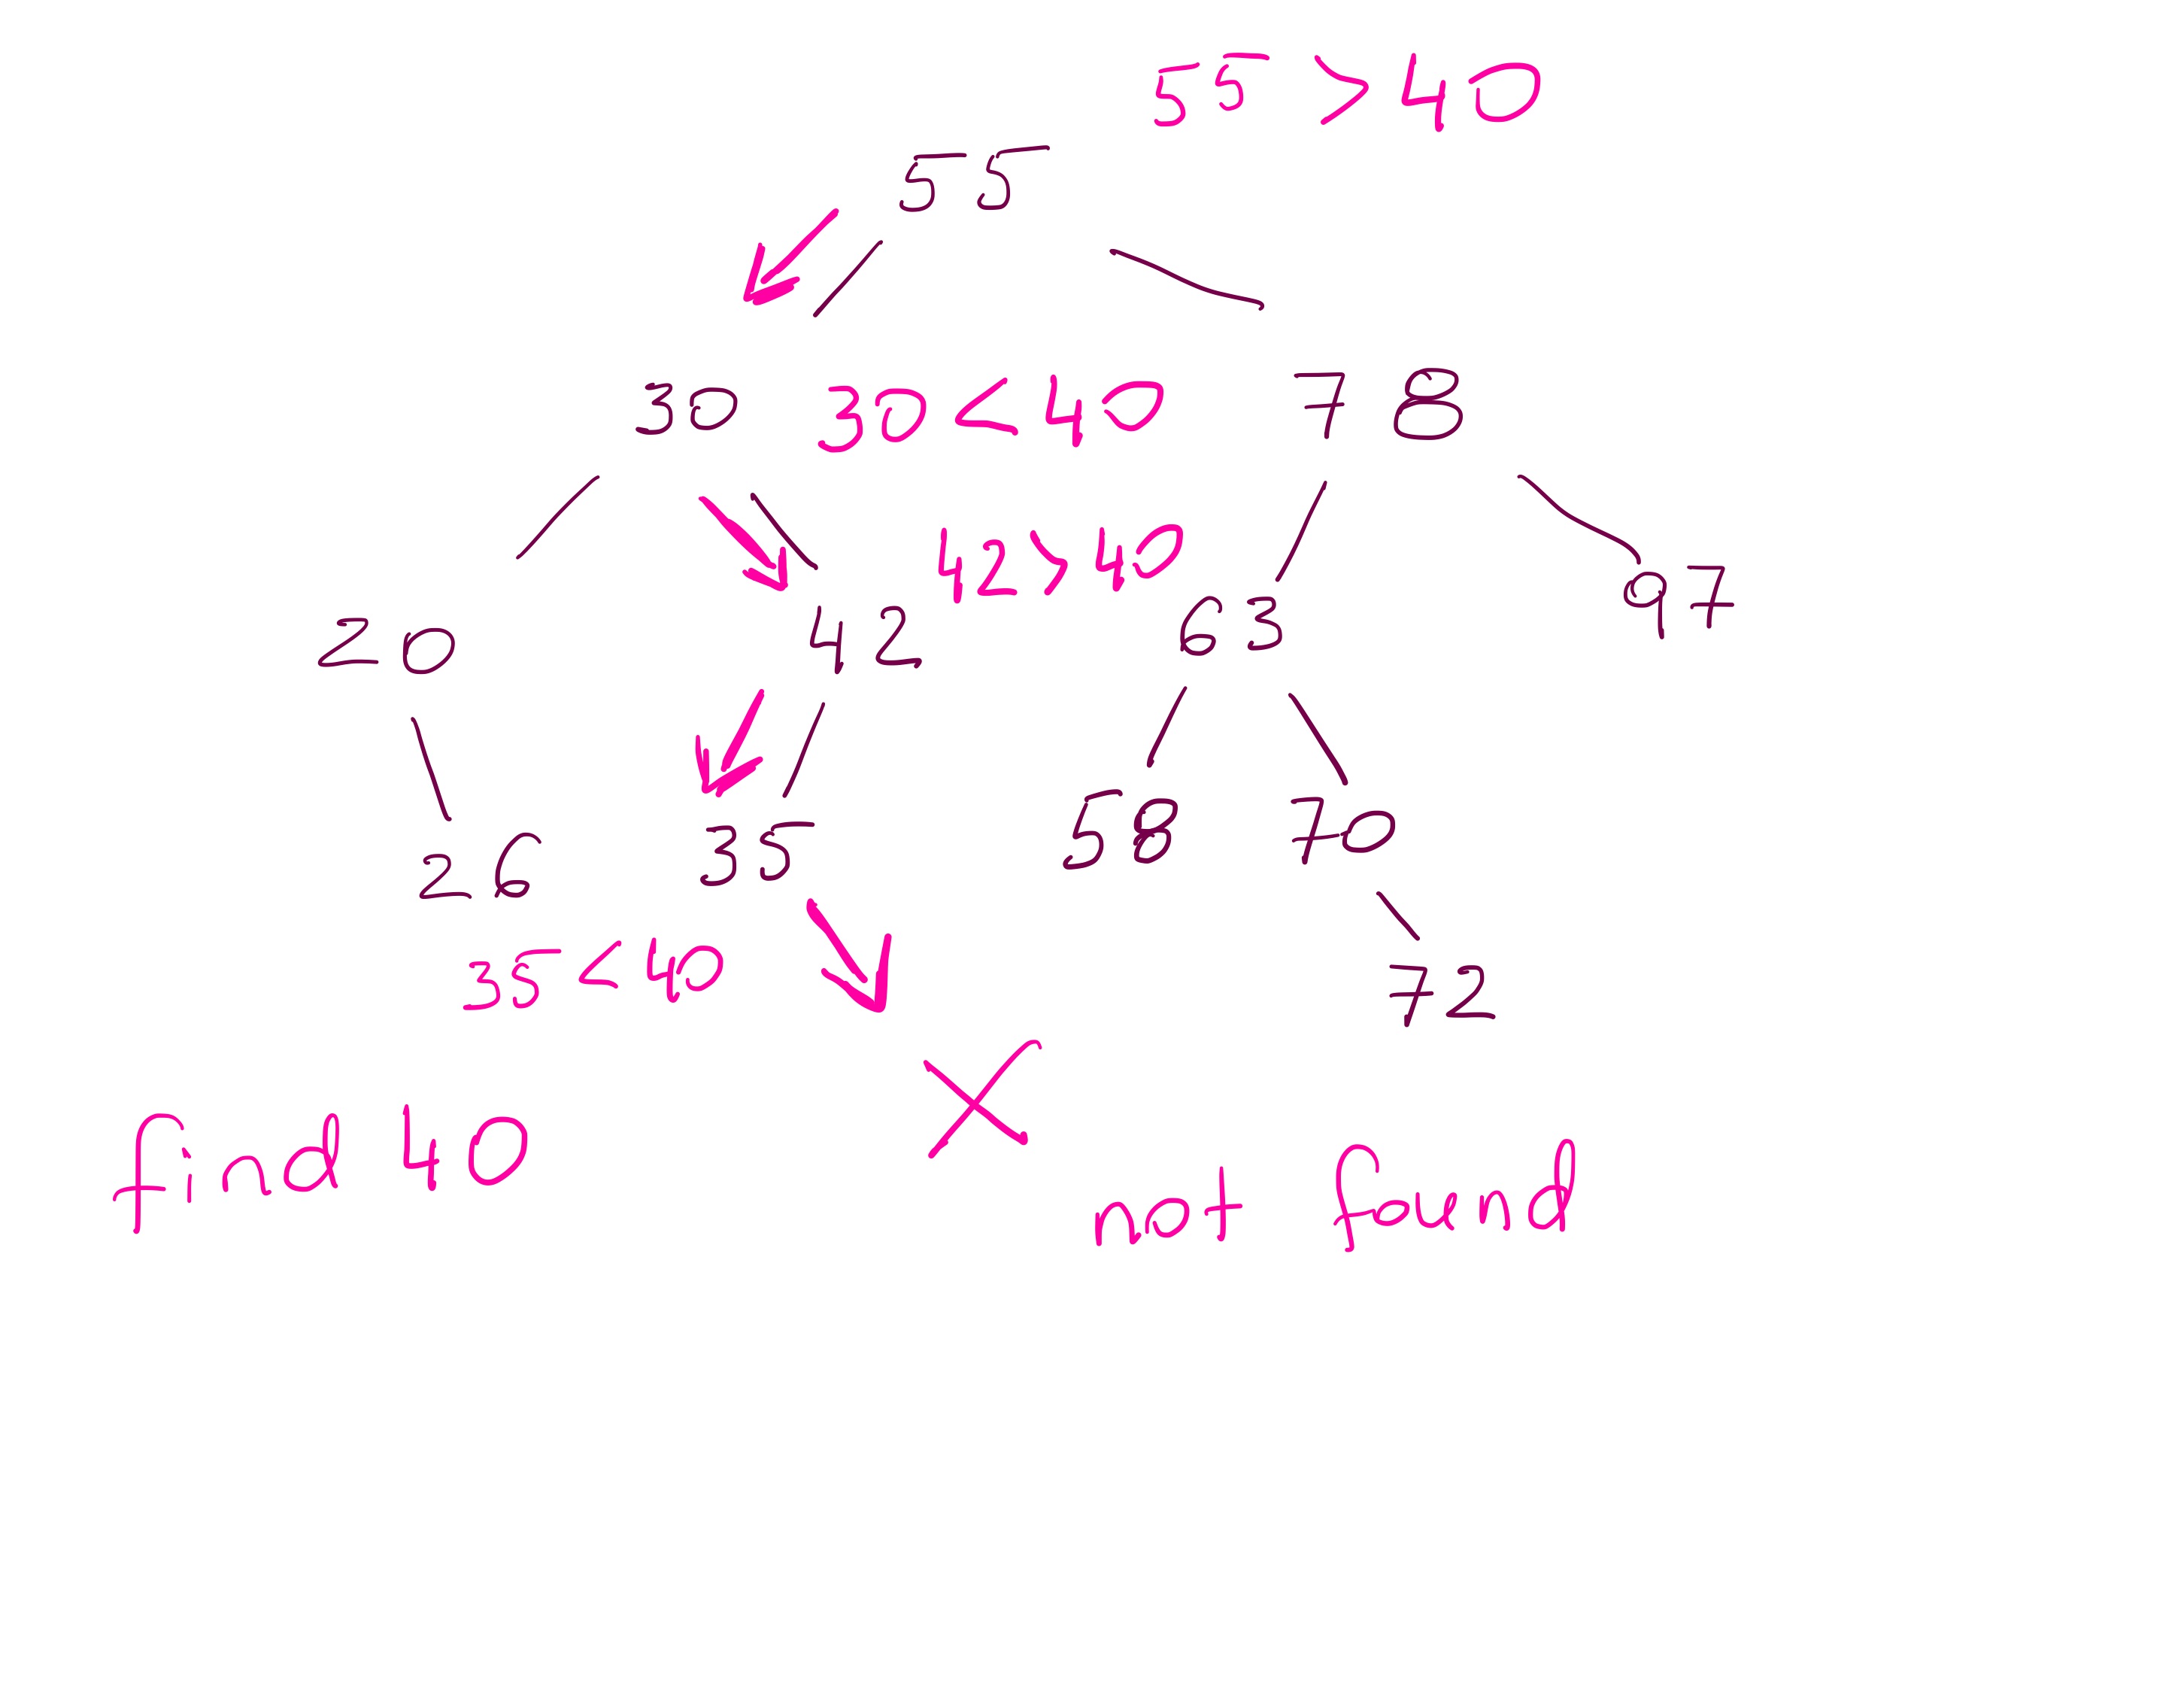 55 > 40
55
30 30 < 40 78
42 > 40
20 42 63 97
26 35 58 70
35 < 40 72
find 40
not found